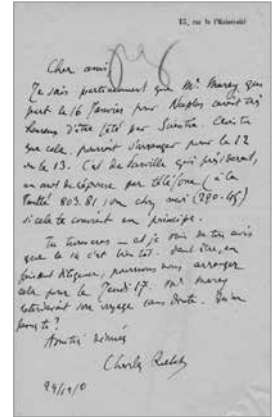 15, rue de l'Université
Cher ami
Je sais pertinemment que Mr Marey qui
part le 16 Janvier pour Naples serait très
heureux d'être fêté par Scientia.
que cela pourrait s'arranger pour le 12
ou le 13. C'est de qui présiderait,
un mot de réponse par téléfone (à la
803.81 ; ou chez moi (290-45)
si cela te convient en principe.
Tu trouveras — et je suis de ton avis
que le 12 c'est bien tôt. Peut être, en
faisant diligence, pourrions nous arranger
cela pour le Jeudi 17. Mr Marey
retarderait son voyage sans doute. Qu'en
penses tu ?
Amitiés
Charles Richet